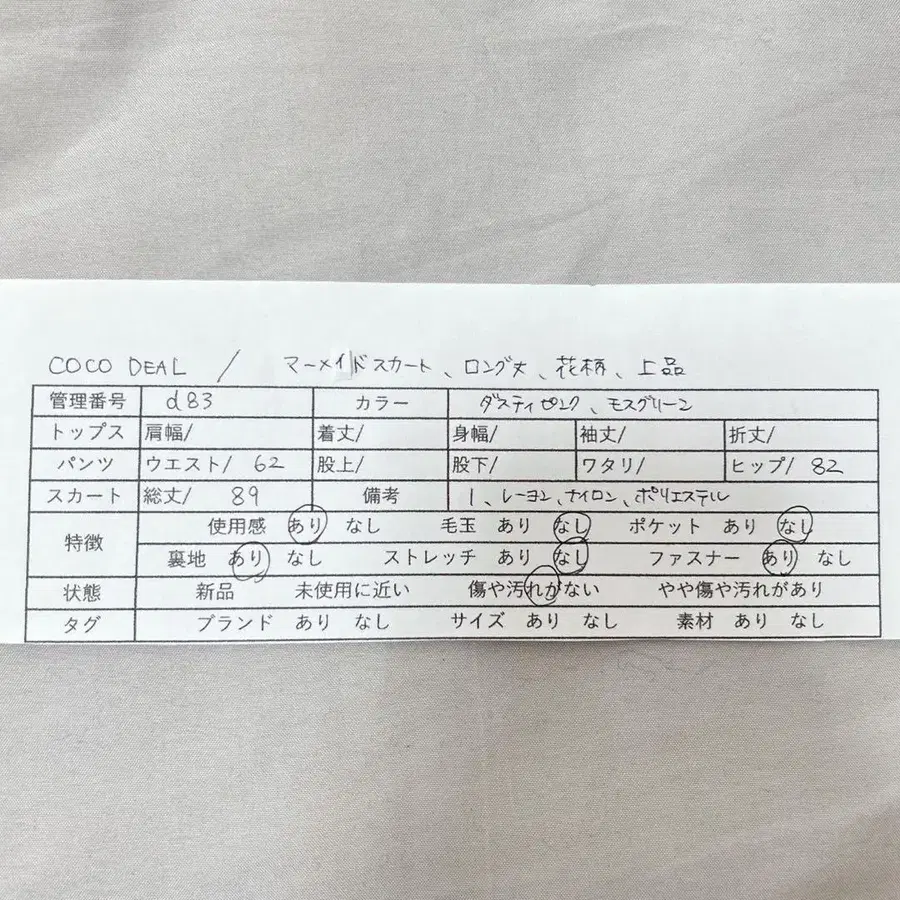 COCO DEAL / マーメイドスカート、ロング丈、花柄、上品
管理番号 d83 カラー ダスティピンク、モスグリーン
トップス 肩幅/ 着丈/ 身幅/ 袖丈/ 折丈/
パンツ ウエスト/ 62 股上/ 股下/ ワタリ/ ヒップ/ 82
スカート 総丈/ 89 備考 1、レーヨン、ナイロン、ポリエステル
特徴 使用感 あり なし 毛玉 あり なし ポケット あり なし
裏地 あり なし ストレッチ あり なし ファスナー あり なし
状態 新品 未使用に近い 傷や汚れがない やや傷や汚れがあり
タグ ブランド あり なし サイズ あり なし 素材 あり なし